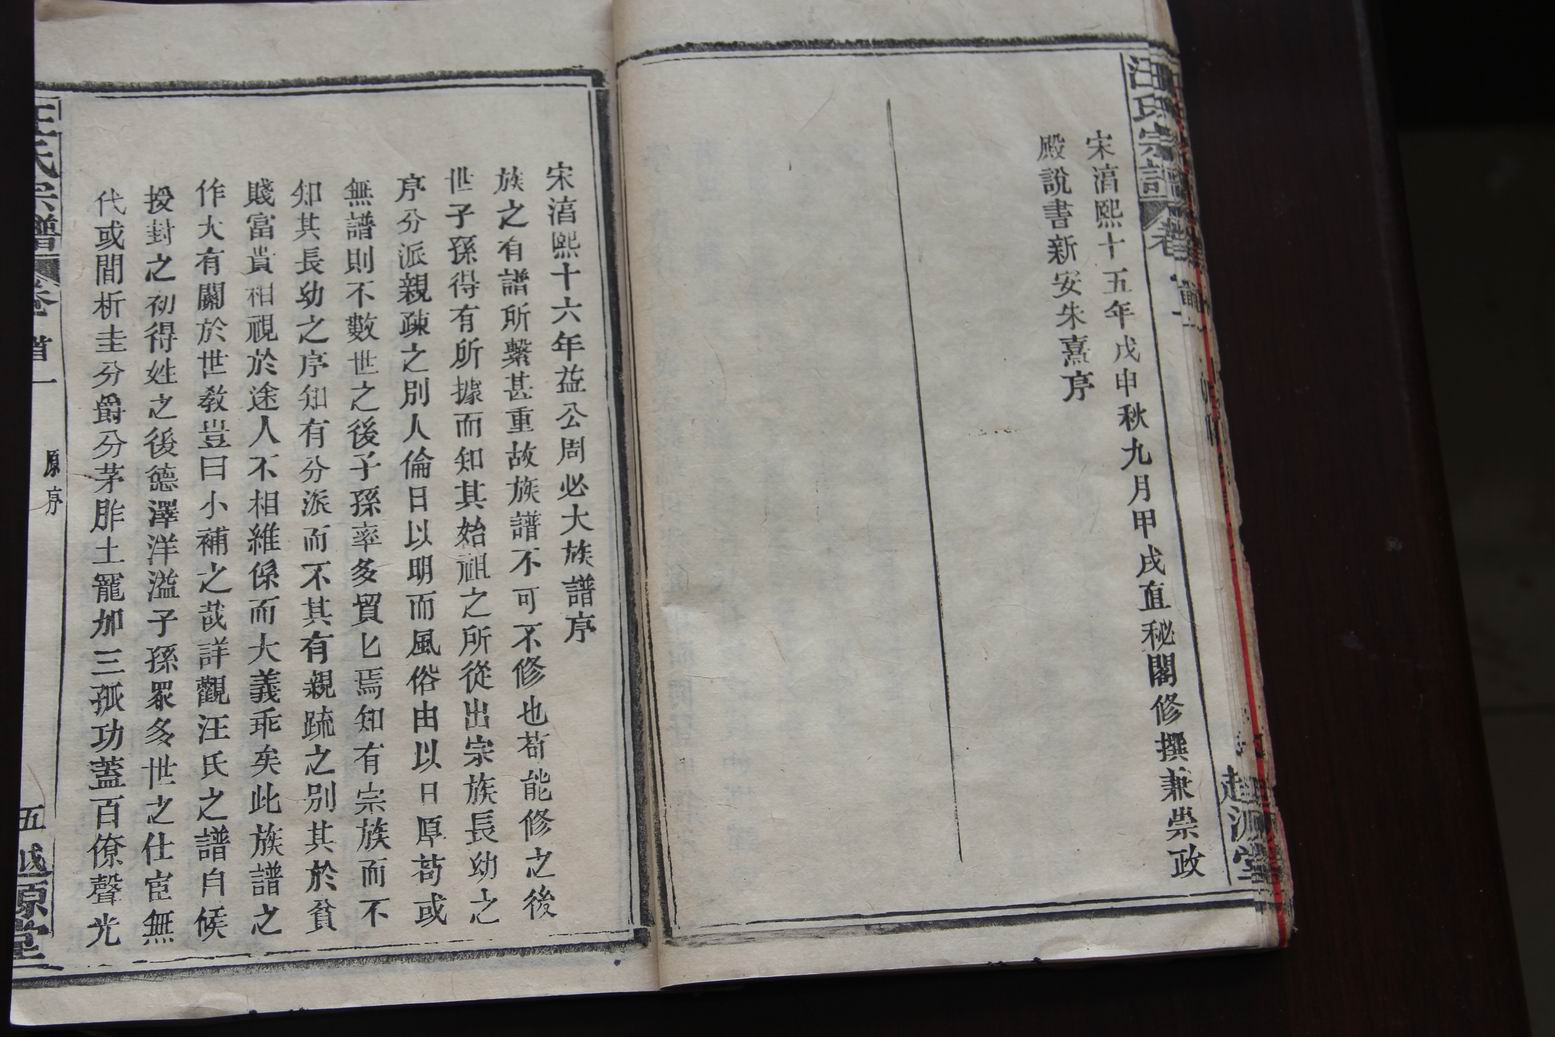 汪氏宗譜
宋湻熙十五年戊申秋九月甲戌直秘閣修撰兼崇政
殿說書新安朱熹序
宋湻熙十六年益公周必大族譜序
族之有譜所繫甚重故族譜不可不修也苟能修之後
世子孫得有所據而知其始祖之所從出宗族長幼之
序分派親疎之別人倫日以明而風俗由以日厚苟或
無譜則不數世之後子孫率多買匕焉知有宗族而不
知其長幼之序知有分派而不其有親疏之別其於貧
賤富貴相視於途人不相維係而大義乖矣此族譜之
作大有關於世敎豈曰小補之哉詳觀汪氏之譜自候
授封之初得姓之後德澤洋溢子孫眾多世之仕宦無
代或間析圭分爵分茅胙土寵加三孤功蓋百僚聲光
汪氏宗譜 卷首一 原序 五 越源堂